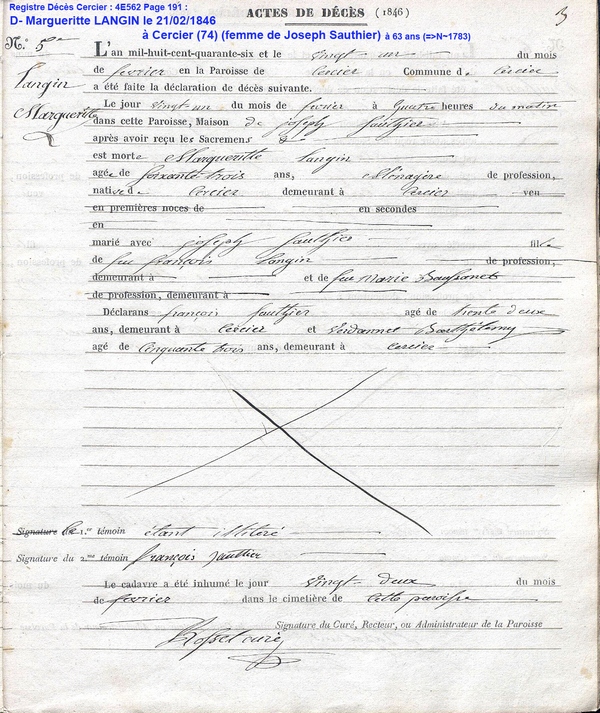 Registre Décès Cercier : 4E562 Page 191 :
D- Margueritte LANGIN le 21/02/1846
à Cercier (74) (femme de Joseph Sauthier) à 63 ans (=>N~1783)
ACTES DE DÉCÈS (1846)
3
N.° 5
Langin
Margueritte
L'an mil-huit-cent-quarante-six et le vingt un du mois
de février en la Paroisse de Cercier Commune de Cercier
a été faite la déclaration de décès suivante.
Le jour vingt un du mois de février à quatre heures du matin
dans cette Paroisse, Maison de joseph Sauthier
après avoir reçu les Sacremens
est morte Margueritte Langin
agée de soixante trois ans, Ménagère de profession,
native de Cercier demeurant à Cercier veu
en premières noces de en secondes
en
marié avec joseph Sauthier fille
de feu françois Langin de profession,
demeurant à et de feue Marie
de profession, demeurant à
Déclarans françois Sauthier agé de trente deux
ans, demeurant à Cercier et Verdonnet Barthélemy
agé de Cinquante trois ans, demeurant à Cercier
Signature du 1.er témoin étant illitéré
Signature du 2.me témoin françois Sauthier
Le cadavre a été inhumé le jour vingt deux du mois
de février dans le cimetière de cette paroisse
Signature du Curé, Recteur, ou Administrateur de la Paroisse
curé